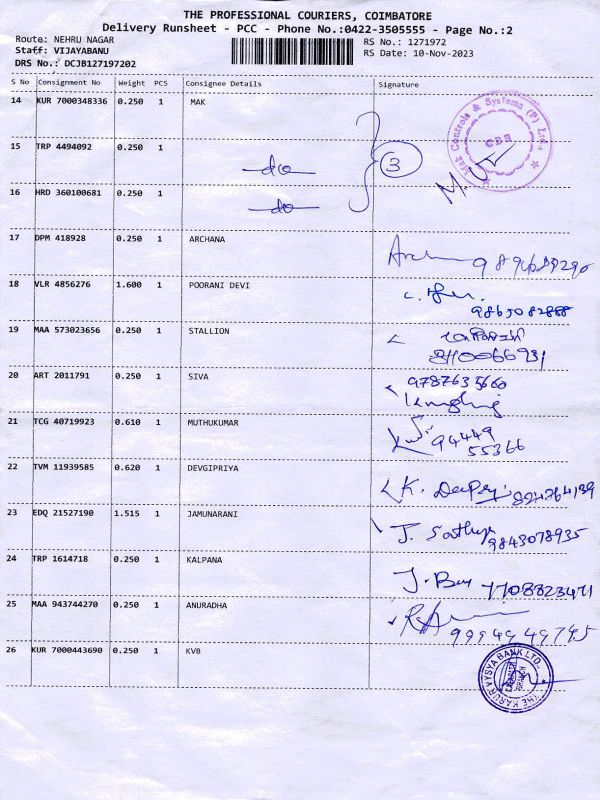 THE PROFESSIONAL COURIERS, COIMBATORE
Delivery Runsheet - PCC - Phone No.:0422-3505555 - Page No.:2
Route: NEHRU NAGAR
Staff: VIJAYABANU
DRS No.: DCJB127197202
RS No.: 1271972
RS Date: 10-Nov-2023
S No Consignment No Weight PCS Consignee Details Signature
14 KUR 7000348336 0.250 1 MAK
Mak Controls & Systems (P) Ltd.
CBE
15 TRP 4494092 0.250 1
do
3
16 HRD 360100681 0.250 1
do
17 DPM 418928 0.250 1 ARCHANA
18 VLR 4856276 1.600 1 POORANI DEVI
9865082888
19 MAA 573023656 0.250 1 STALLION
8110066931
20 ART 2011791 0.250 1 SIVA
9787635660
21 TCG 40719923 0.610 1 MUTHUKUMAR
94449
55366
22 TVM 11939585 0.620 1 DEVGIPRIYA
K.
23 EDQ 21527190 1.515 1 JAMUNARANI
J. Sathya
9843078935
24 TRP 1614718 0.250 1 KALPANA
7708823471
25 MAA 943744270 0.250 1 ANURADHA
9994949745
26 KUR 7000443690 0.250 1 KVB
THE KARUR VYSYA BANK LTD.,